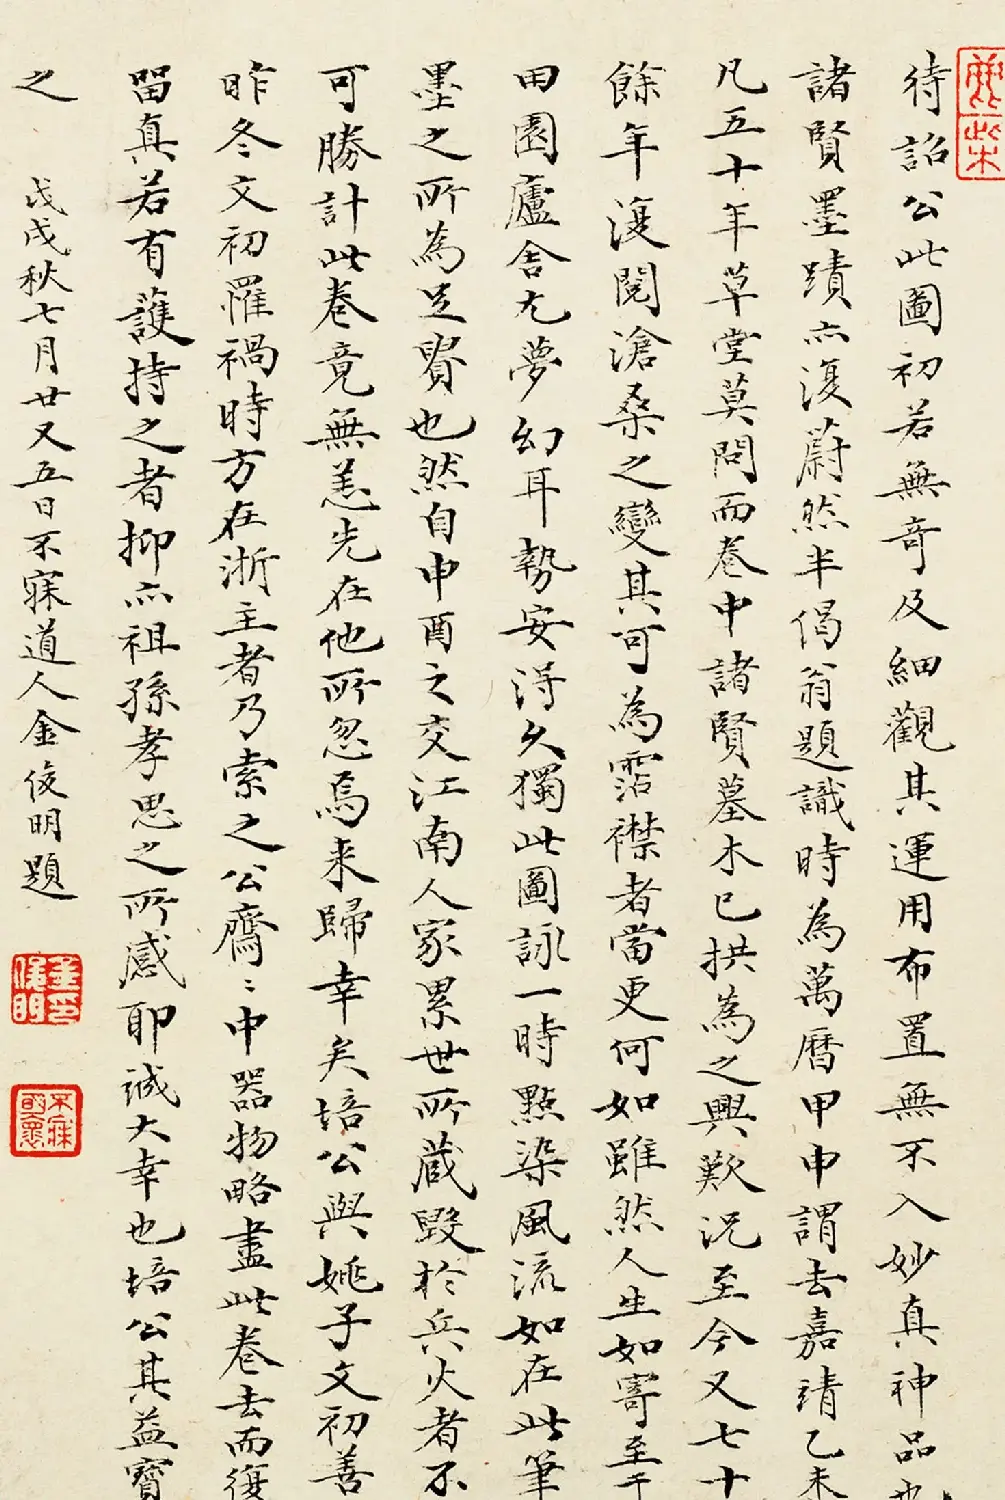 待詔公此圖初若無奇及細觀其運用布置無不入妙真神品也
諸賢墨蹟亦復蔚然半偈翁題識時為萬曆甲申謂去嘉靖乙未
凡五十年草堂莫問而卷中諸賢墓木已拱為之興歎況至今又七十
餘年復閱滄桑之變其可為霑襟者當更何如雖然人生如寄至于
田園廬舍尤夢幻耳勢安得久獨此圖詠一時點染風流如在此筆
墨之所為足貴也然自申酉之交江南人家累世所藏毀於兵火者不
可勝計此卷竟無恙先在他所忽焉来歸幸矣培公與姚子文初善
昨冬文初罹禍時方在浙主者乃索之公齋〻中器物略盡此卷去而復
留真若有護持之者抑亦祖孫孝思之所感耶誠大幸也培公其益寶
之　戊戌秋七月廿又五日不寐道人金俊明題